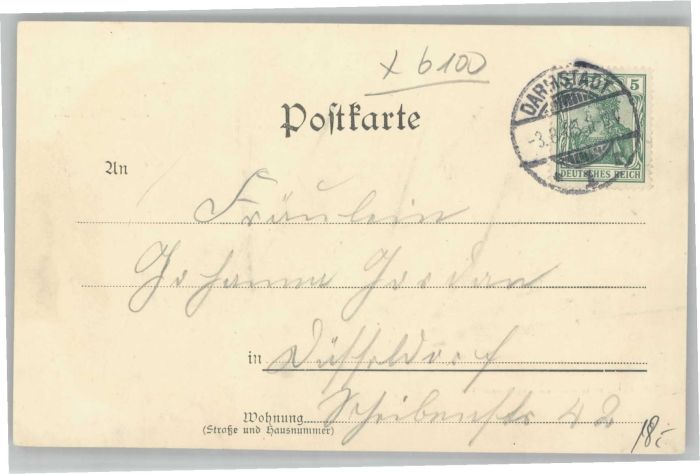 x 6100
Postkarte
DARMSTADT
5
DEUTSCHES REICH
An
Fräulein
Johanna Jordan
in Düsseldorf
Wohnung Scheibenstr 42
(Straße und Hausnummer)
18.-